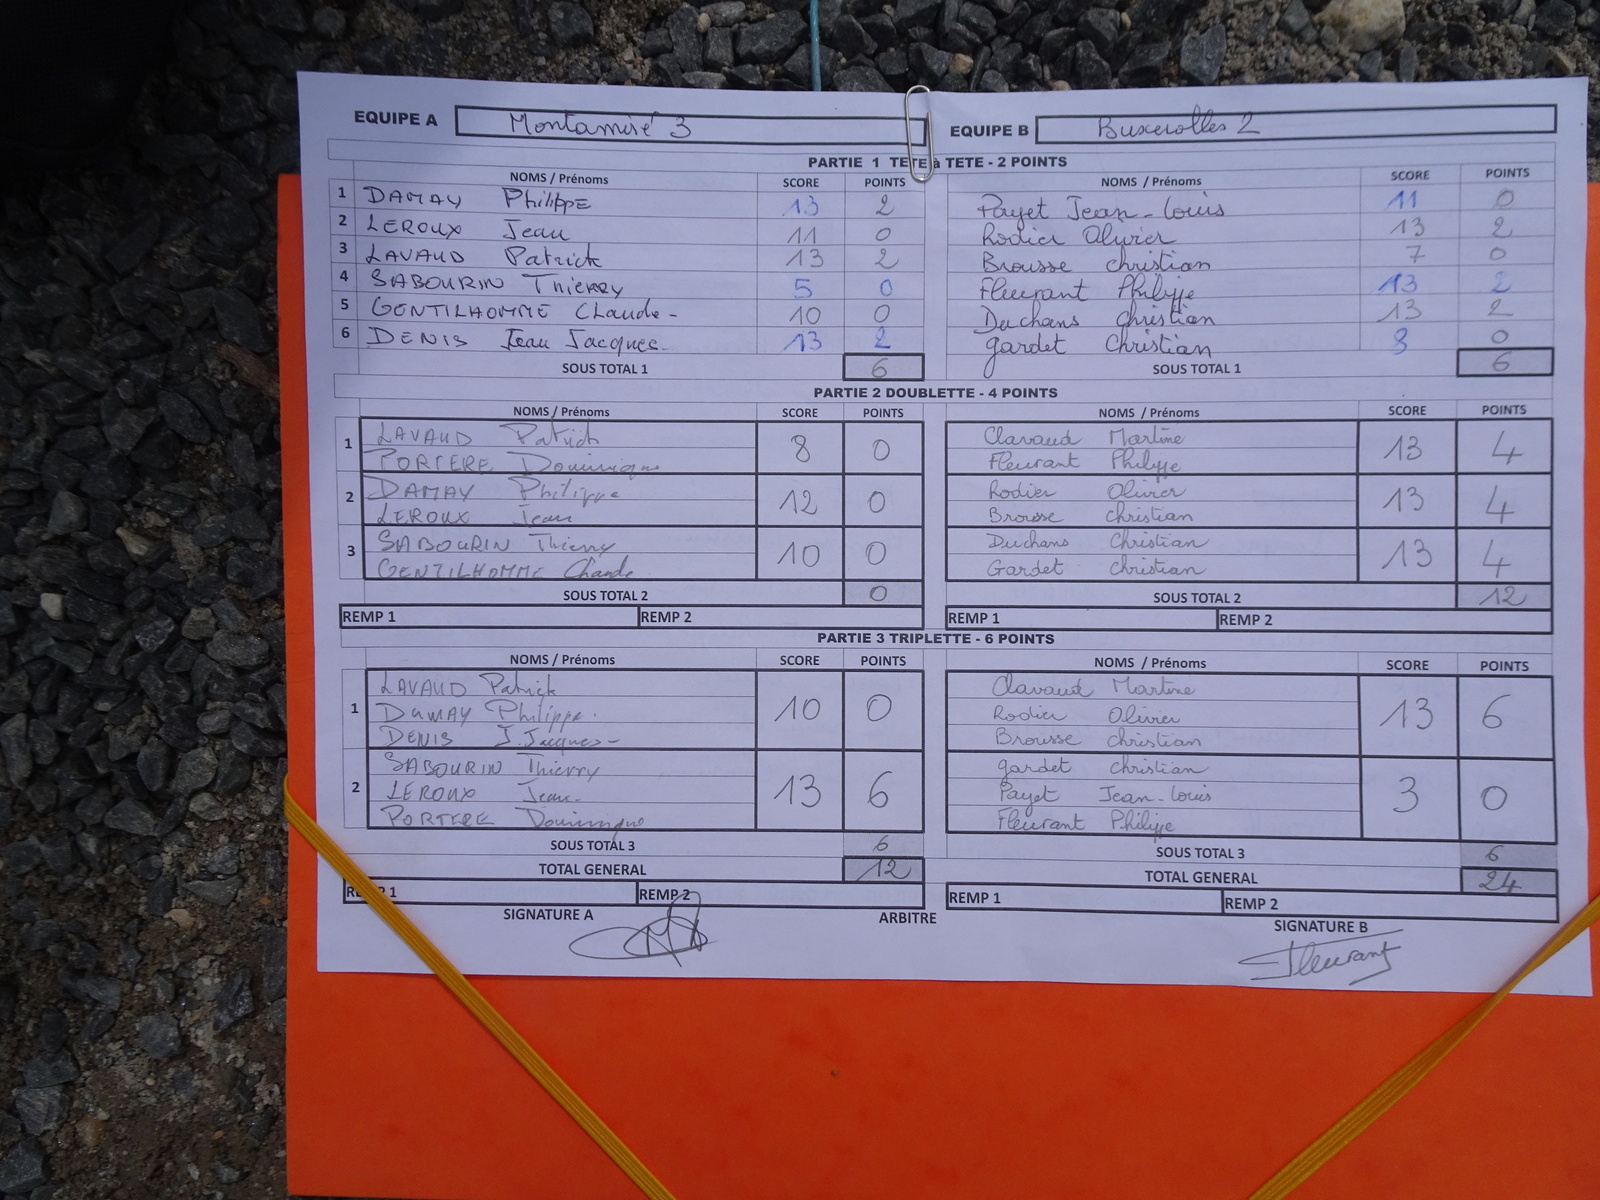 EQUIPE A Montamisé 3 EQUIPE B Buxerolles 2
PARTIE 1 TETE à TETE - 2 POINTS
NOMS / Prénoms SCORE POINTS NOMS / Prénoms SCORE POINTS
1 DAMAY Philippe 13 2 Payet Jean-Louis 11 0
2 LEROUX Jean 11 0 Rodier Olivier 13 2
3 LAVAUD Patrick 13 2 Brousse christian 7 0
4 SABOURIN Thierry 5 0 Fleurant Philippe 13 2
5 GENTILHOMME Claude - 10 0 Duchans christian 13 2
6 DENIS Jean Jacques 13 2 gardet christian 0
SOUS TOTAL 1 6 SOUS TOTAL 1 6
PARTIE 2 DOUBLETTE - 4 POINTS
NOMS / Prénoms SCORE POINTS NOMS / Prénoms SCORE POINTS
1 LAVAUD Patrick 8 0 Clavaud Martine 13 4
PORTERE Dominique Fleurant Philippe
2 DAMAY Philippe 12 0 Rodier Olivier 13 4
LEROUX Jean Brousse christian
3 SABOURIN Thierry 10 0 Duchans christian 13 4
GENTILHOMME Claude Gardet christian
SOUS TOTAL 2 0 SOUS TOTAL 2 12
REMP 1 REMP 2 REMP 1 REMP 2
PARTIE 3 TRIPLETTE - 6 POINTS
NOMS / Prénoms SCORE POINTS NOMS / Prénoms SCORE POINTS
1 LAVAUD Patrick 10 0 Clavaud Martine 13 6
DAMAY Philippe Rodier Olivier
DENIS J.Jacques - Brousse christian
2 SABOURIN Thierry 13 6 gardet christian 3 0
LEROUX Jean Payet Jean-Louis
PORTERE Dominique Fleurant Philippe
SOUS TOTAL 3 6 SOUS TOTAL 3 6
TOTAL GENERAL 12 TOTAL GENERAL 24
REMP 1 REMP 2 REMP 1 REMP 2
SIGNATURE A ARBITRE SIGNATURE B
Fleurant